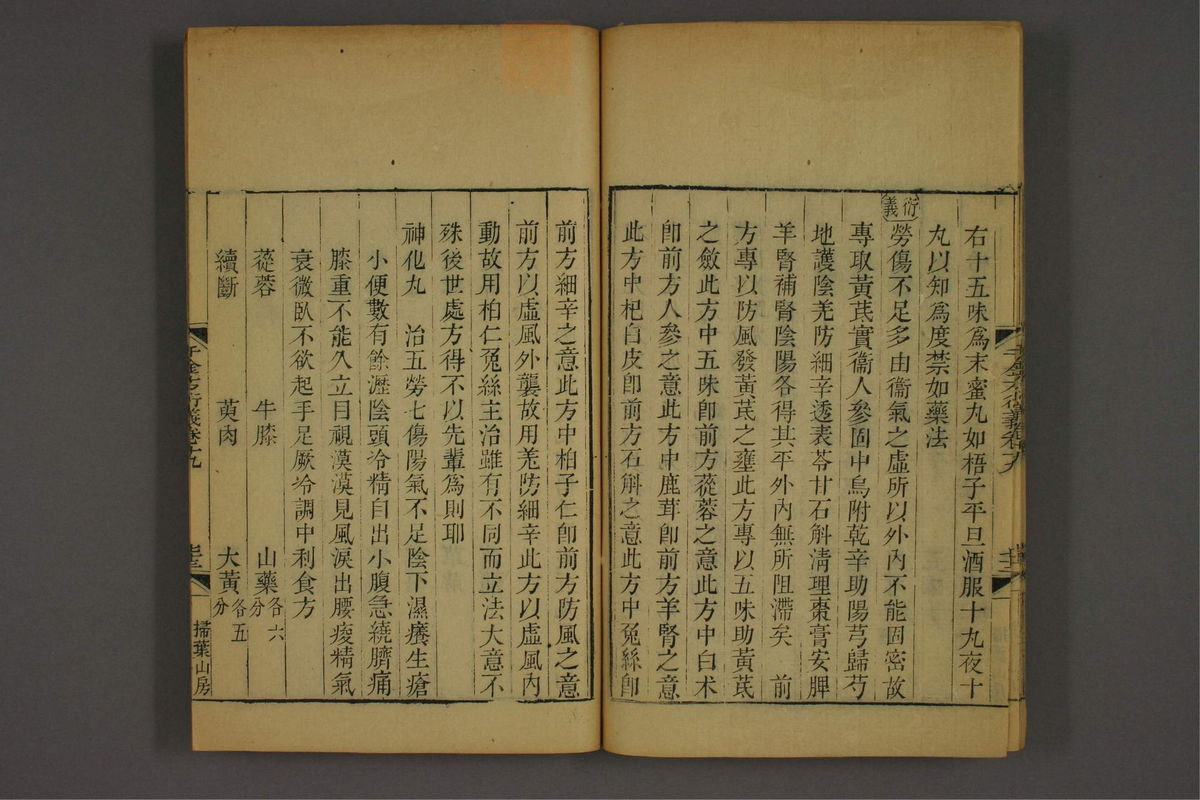 右十五味爲末蜜丸如梧子平旦酒服十九夜十
丸以知爲度禁如藥法
衍義
勞傷不足多由衞氣之虛所以外內不能固密故
專取黃芪實衞人參固中烏附乾辛助陽芎歸芍
地護陰羌防細辛透表苓甘石斛淸理棗膏安脾
羊腎補腎陰陽各得其平外內無所阻滯矣　前
方專以防風發黃芪之壅此方專以五味助黃芪
之斂此方中五味卽前方蓯蓉之意此方中白术
卽前方人參之意此方中鹿茸卽前方羊腎之意
此方中杞白皮卽前方石斛之意此方中兔絲卽
前方細辛之意此方中柏子仁卽前方防風之意
前方以虛風外襲故用羌防細辛此方以虛風內
動故用柏仁兔絲主治雖有不同而立法大意不
殊後世處方得不以先輩爲則耶
神化丸　治五勞七傷陽氣不足陰下濕癢生瘡
小便數有餘瀝陰頭冷精自出小腹急繞臍痛
膝重不能久立目視漠漠見風淚出腰痠精氣
衰微臥不欲起手足厥冷調中利食方
蓯蓉　牛膝　山藥各六分
續斷　萸肉　大黃各五分
千金方衍義卷十九
掃葉山房